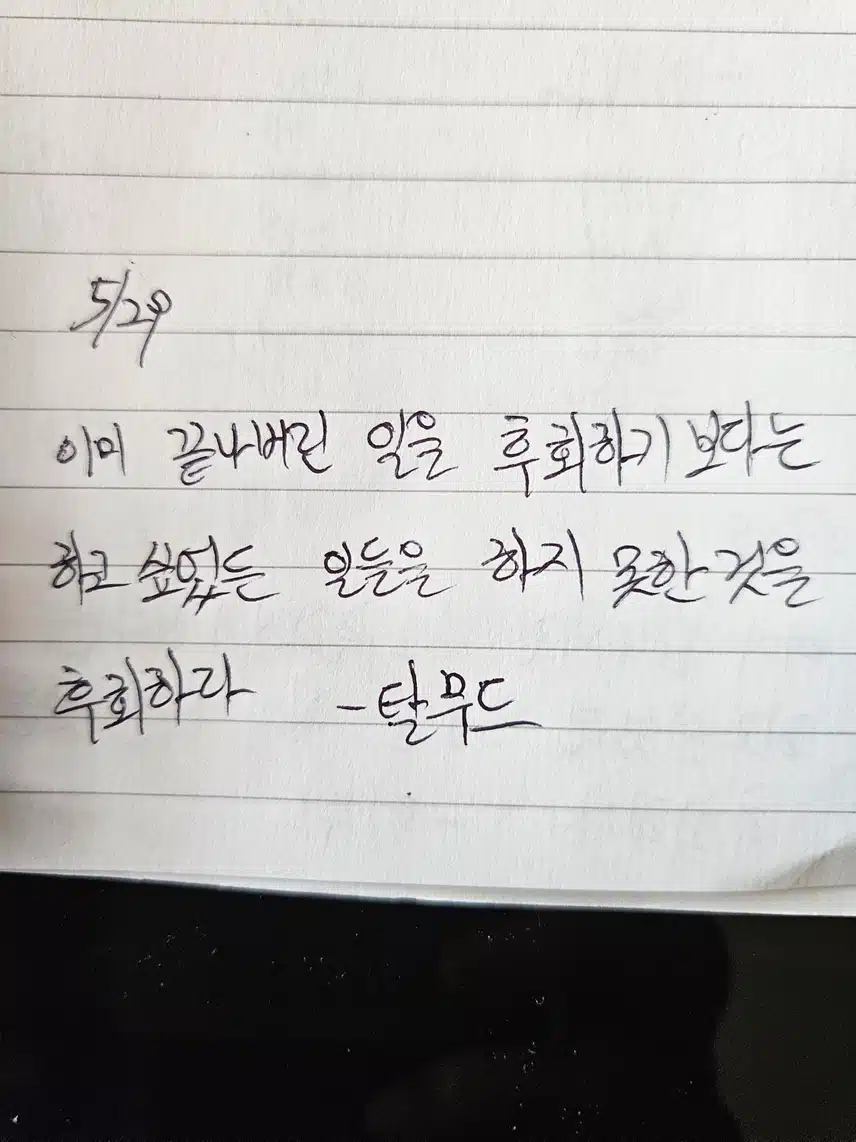 5/29
이미 끝나버린 일을 후회하기 보다는
하고 싶었든 일들을 하지 못한 것을
후회하라 - 탈무드